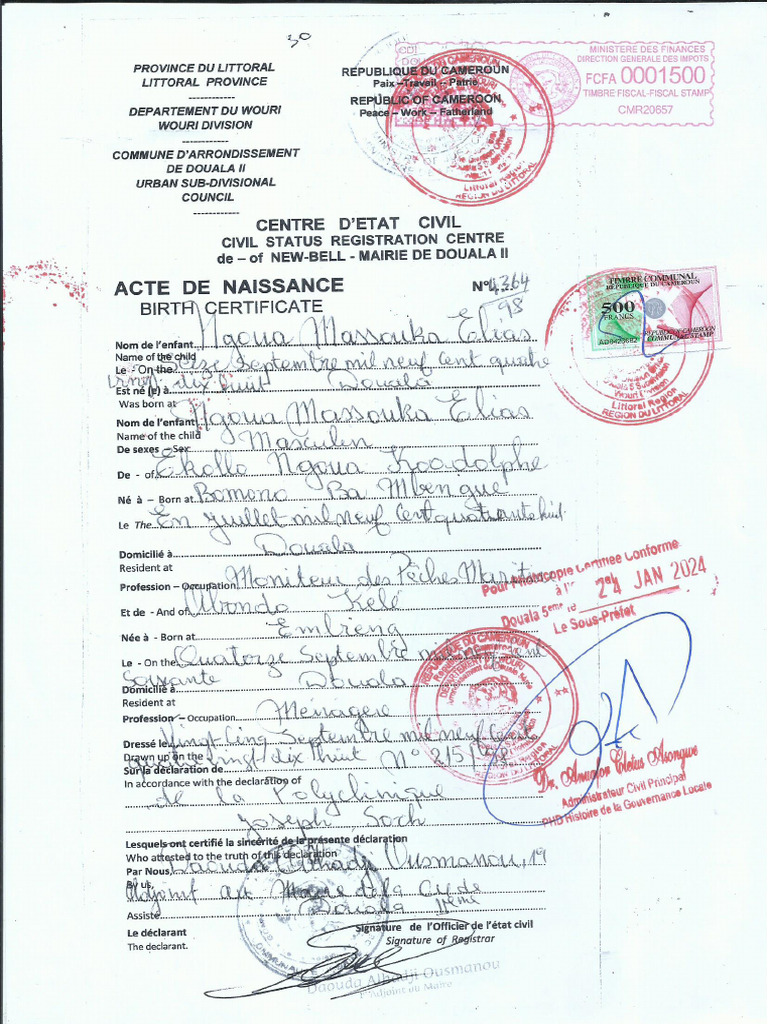 30
PROVINCE DU LITTORAL
LITTORAL PROVINCE
------------
DEPARTEMENT DU WOURI
WOURI DIVISION
------------
COMMUNE D'ARRONDISSEMENT
DE DOUALA II
URBAN SUB-DIVISIONAL
COUNCIL
------------
REPUBLIQUE DU CAMEROUN
Paix –Travail – Patrie
REPUBLIC OF CAMEROON
Peace – Work – Fatherland
MINISTERE DES FINANCES
DIRECTION GENERALE DES IMPOTS
FCFA 0001500
TIMBRE FISCAL-FISCAL STAMP
CMR20657
Littoral Region
REGION DU LITTORAL
CENTRE D'ETAT CIVIL
CIVIL STATUS REGISTRATION CENTRE
de – of NEW-BELL - MAIRIE DE DOUALA II
ACTE DE NAISSANCE N° 4364
BIRTH CERTIFICATE 98
TIMBRE COMMUNAL
REPUBLIQUE DU CAMEROUN
500
FRANCS
REPUBLIC OF CAMEROON
COMMUNAL STAMP
Littoral Region
REGION DU LITTORAL
Nom de l'enfant Ngoua Massouka Elias
Name of the child
Le - On the Seize Septembre mil neuf cent quatre
vingt dix huit Douala
Est né (e) à
Was born at
Nom de l'enfant Ngoua Massouka Elias
Name of the child
De sexes – Sex Masculin
De - of Ekollo Ngoua Roodolphe
Né à – Born at Bomono Ba Mbengue
Le The En juillet mil neuf cent quarante huit
Domicilié à Douala
Resident at
Profession – Occupation Moniteur des Pêches Maritimes
Et de - And of Abondo Kelé
Née à - Born at Embieng
Le - On the Quatorze Septembre mil neuf cent
Soixante Douala
Domicilié à
Resident at
Profession – Occupation Ménagère
Dressé le Vingt Cinq Septembre mil neuf cent
Drawn up on the quatre vingt dix huit N° 215/98
Sur la déclaration de
In accordance with the declaration of
de la Polyclinique
Joseph Soch
Lesquels ont certifié la sincérité de la présente déclaration
Who attested to the truth of this declaration
Par Nous, Daouda Alhadji Ousmanou, 1er
By us, Adjoint au Maire de la Cu de
Assisté Douala IIème
Le déclarant
The declarant.
Signature de l'Officier de l'état civil
Signature of Registrar
Daouda Alhadji Ousmanou
Adjoint au Maire
Pour Photocopie Certifiée Conforme
24 JAN 2024
Douala 5eme le
Le Sous-Préfet
REPUBLIQUE DU CAMEROUN
REGION DU LITTORAL
Administrateur Civil Principal
PHD Histoire de la Gouvernance Locale